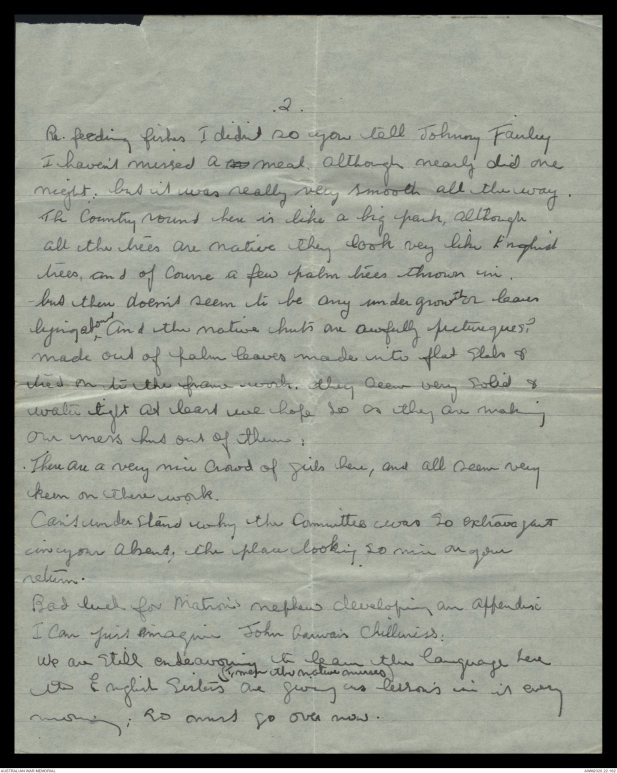 .2.
Re. feeding fishes I didn't so you tell Johnny Fairley
I haven't missed a meal, although nearly did one
night; but it was really very smooth all the way.
The Country round here is like a big park, although
all the trees are native they look very like English
trees, and of course a few palm trees thrown in.
but there doesn't seem to be any undergrowth or leaves
lying about And the native huts are awfully picturques;
made out of palm leaves made into flat slabs &
tied on to the frame work. they seem very solid &
water tight at least we hope so as they are making
our mess hut out of them;
There are a very nice crowd of girls here, and all seem very
keen on there work.
Can't understand why the Committee was so extravagant
in your absent; the place looking so nice on your
return.
Bad luck for Matron's nephew developing an appendix
I can just imagine John Gervais chilliness;
We are still endeavouring to learn the language here
(I mean the native nurses)
the English Sisters are giving us lessons in it every
morning; so must go over now.
AUSTRALIAN WAR MEMORIAL